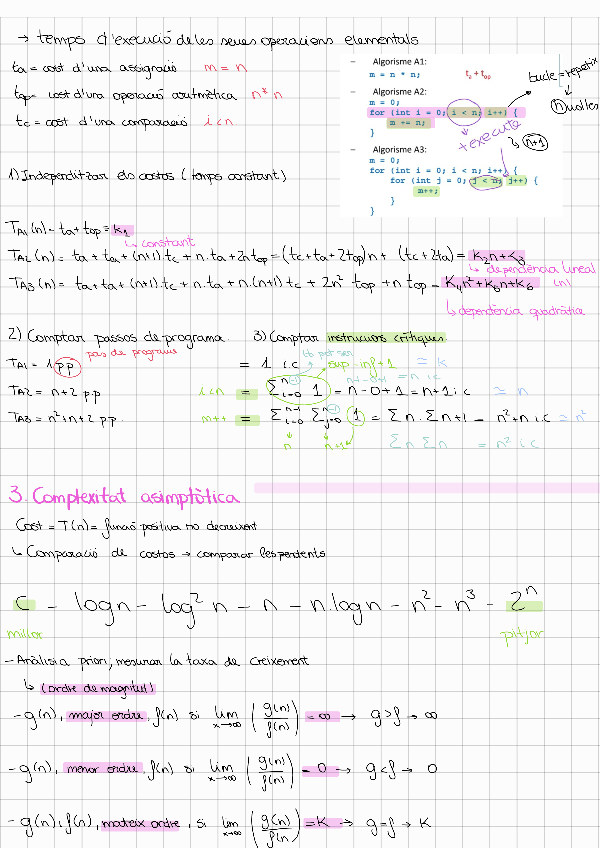 → temps d'execució de les seues operacions elementals
ta = cost d'una assignació m = n
top = cost d'una operació aritmètica n * n
tc = cost d'una comparació i < n
– Algorisme A1:
m = n * n; ta + top
– Algorisme A2:
m = 0;
for (int i = 0; i < n; i++) {
m += n;
}
bucle = repetix
↓
n voltes
+ executa
↳ n+1
– Algorisme A3:
m = 0;
for (int i = 0; i < n; i++)
for (int j = 0; j < n; j++) {
m++;
}
}
1) Independitzar els costos (temps constant)
TA1 (n) = ta + top = k1
↳ constant
TA2 (n) = ta + ta + (n+1) tc + n. ta + 2n top = (tc + ta + 2top) n + (tc + 2ta) = K2n + K3
↳ dependència lineal (n)
TA3 (n) = ta + ta + (n+1) tc + n. ta + n. (n+1) tc + 2n² top + n top = K4n² + K5n + K6
↳ dependència quadràtica
2) Comptar passos de programa.
pas de programa
TA1 = 1 pp
TA2 = n + 2 pp
TA3 = n² + n + 2 pp.
3) Comptar instruccions crítiques
= 1 i.c sup - inf + 1 ≃ k
i < n = Σ n i=0 1 = n - 0 + 1 = n + 1 i.c ≃ n
m++ = Σ n-1 i=0 Σ n j=0 1 = Σ n. Σ n+1 = n² + n i.c ≃ n²
n n+1 Σ n Σ n = n² i.c
3. Complexitat asimptòtica
Cost = T(n) = funció positiva no decreixent
↳ Comparació de costos → comparar les pendents
C – log n – log² n – n – n.log n – n² – n³ – 2ⁿ
millor pitjor
– Anàlisi a priori, mesurar la taxa de creixement
↳ (ordre de magnitud)
– g(n), major ordre, f(n) si lim x→∞ (g(n)/f(n)) = ∞ → g > f → ∞
– g(n), menor ordre, f(n) si lim x→∞ (g(n)/f(n)) = 0 → g < f → 0
– g(n) i f(n), mateix ordre, si lim x→∞ (g(n)/f(n)) = K → g = f → K